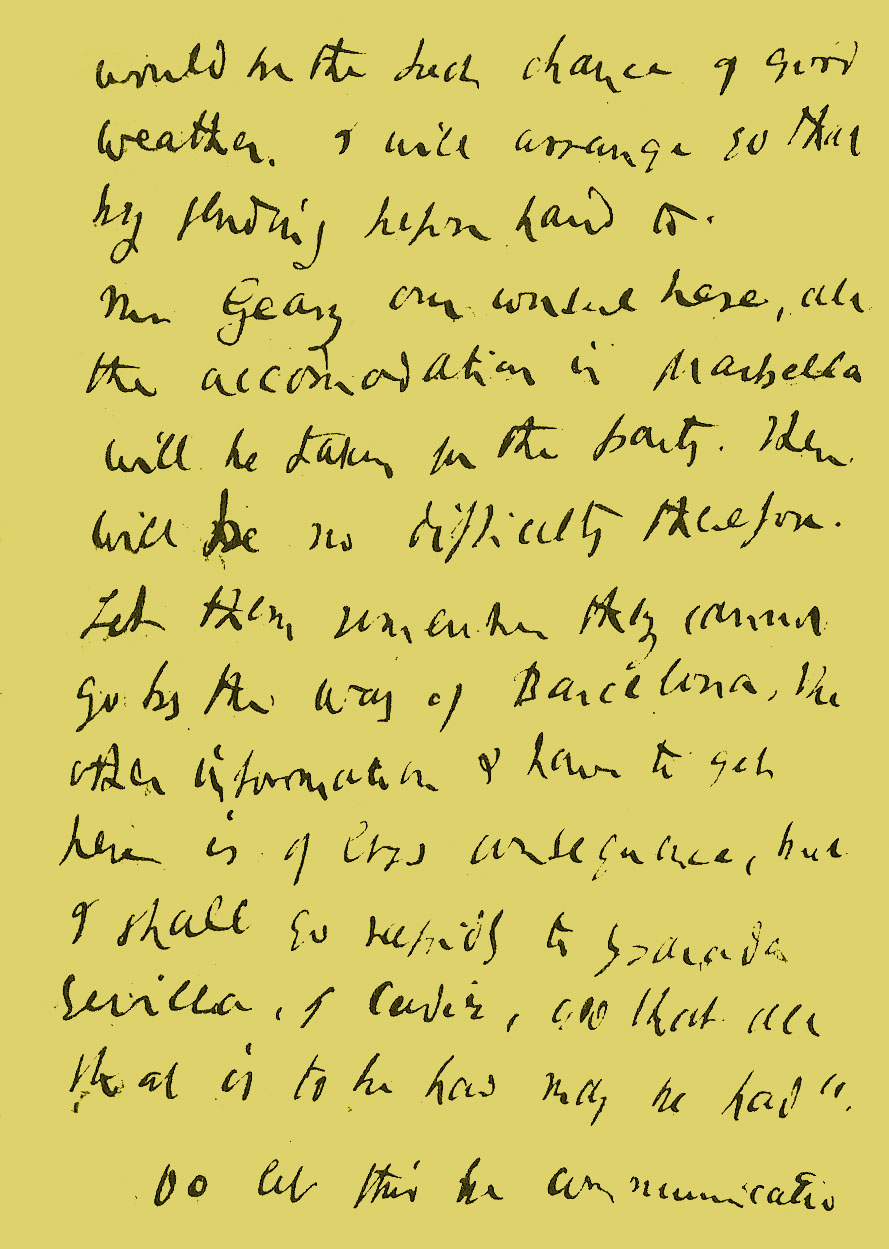 would be the best chance of good
weather. I will arrange so that
by sending before hand to
Mr Geary our consul here, all
the accomodation in Marbella
will be taken for the party. There
will be no difficulty therefore.
Let them remember they cannot
go by the way of Barcelona, the
other information I have to get
here is of less consequence, but
I shall go rapidly to Granada
Sevilla, & Cadiz, so that all
that is to be had may be had".
Do let this be communicated